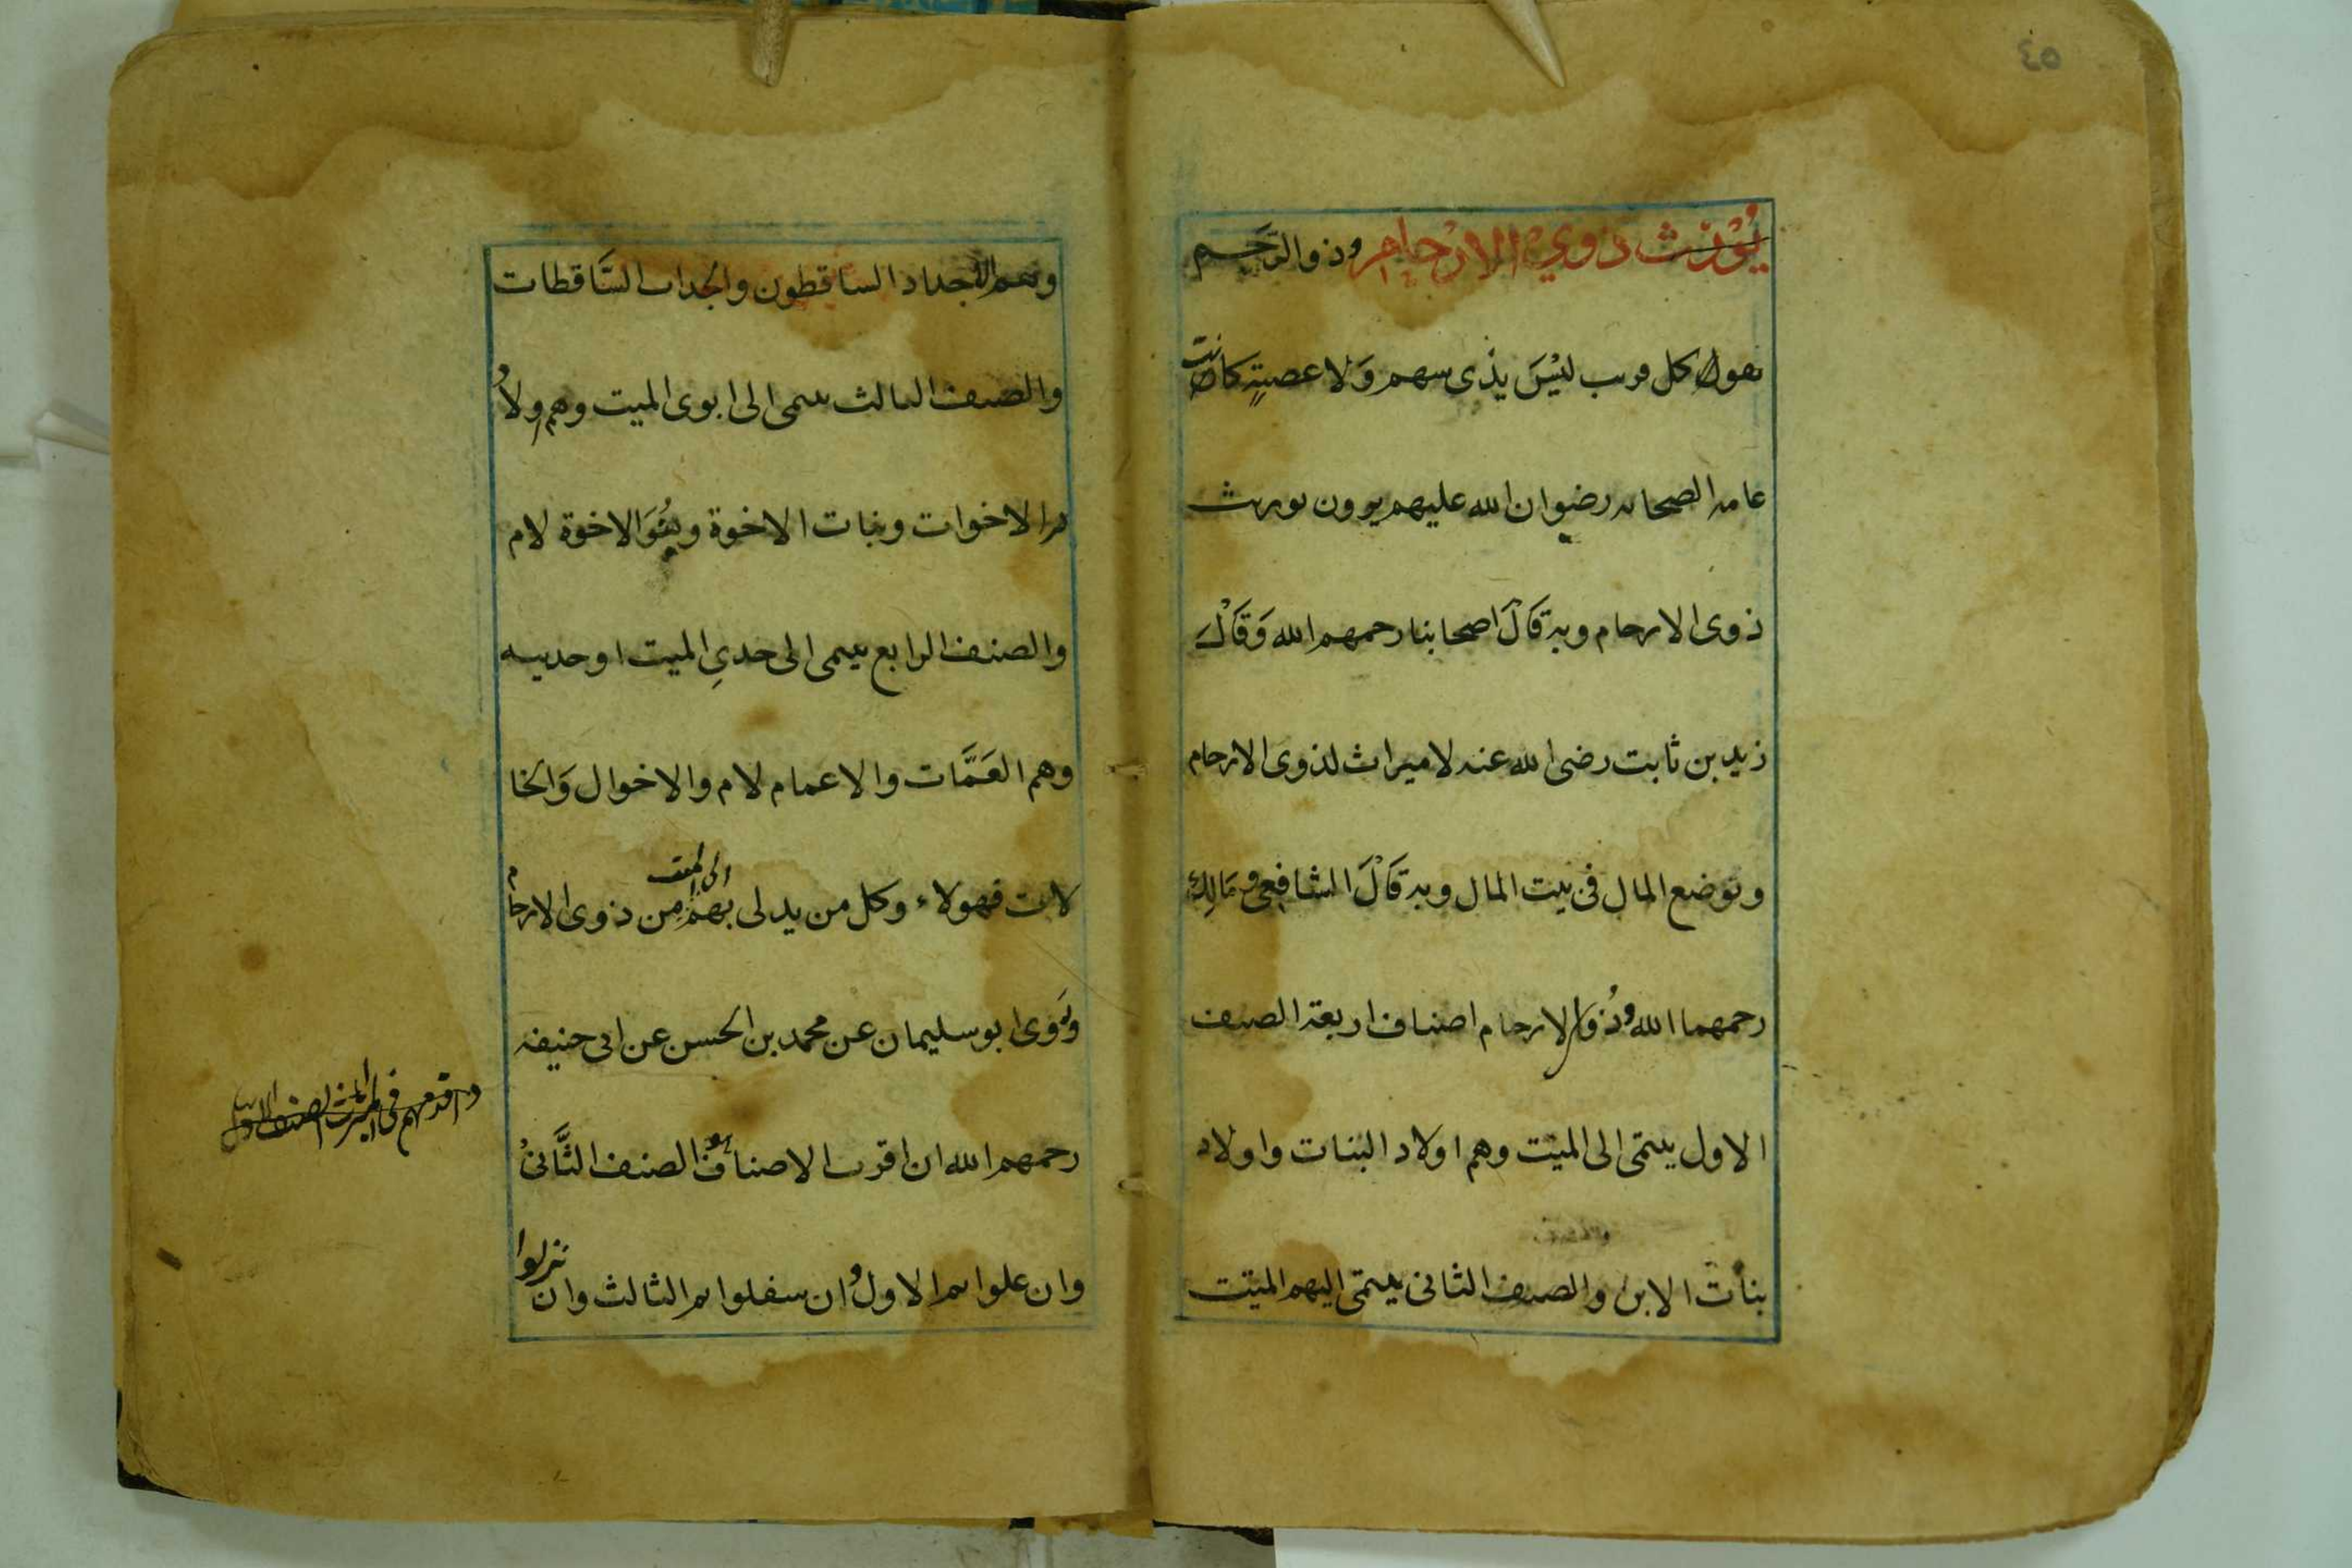 ٤٥
يُوْرَث ذوي الارْحام وذوالرَّحِم
نقول كل قريب ليْسَ بذى سهم وَلا عصبةٍ كانت
عامة الصحابه رضوان الله عليهم يرون توريث
ذوى الارحام وبه قَالَ اصحابنا رحمهم الله وَقَالَ
زيد بن ثابت رضى الله عنه لا ميراث لذوى الارحام
ويوضع المال فى بيت المال وبه قَالَ الشافعى ومَالِك
رحمهما الله وذُوَالارحام اصناف اربعة الصنف
الاول ينتمى الى الميّت وهم اولاد البنات واولاد
بنات الابن والصنف الثانى ينتمى اليهم الميّت
وهم الاجداد الساقطون والجدات السَّاقطات
والصنف الثالث ينتمى الى ابوى الميت وهم ولاُ
الاخوات وبنات الاخوة وبنُوَالاخوة لام
والصنف الرابع ينتمى الى جدىِ الميت او جدتيه
وهم العَمَّات والاعمام لام والاخوال وَالخا
لات فهولاء وكل من يدلى بهم الى الميت من ذوى الارحام
وَرَوى ابو سليمان عن محمد بن الحسن عن ابى حنيفه
رحمهم الله ان اقرب الاصناف هو الصنف الثَّانىْ
واقدمهم فى الميراث الصنف الاول
وان علوا ثم الاول وان سفلوا ثم الثالث وان نزلوا